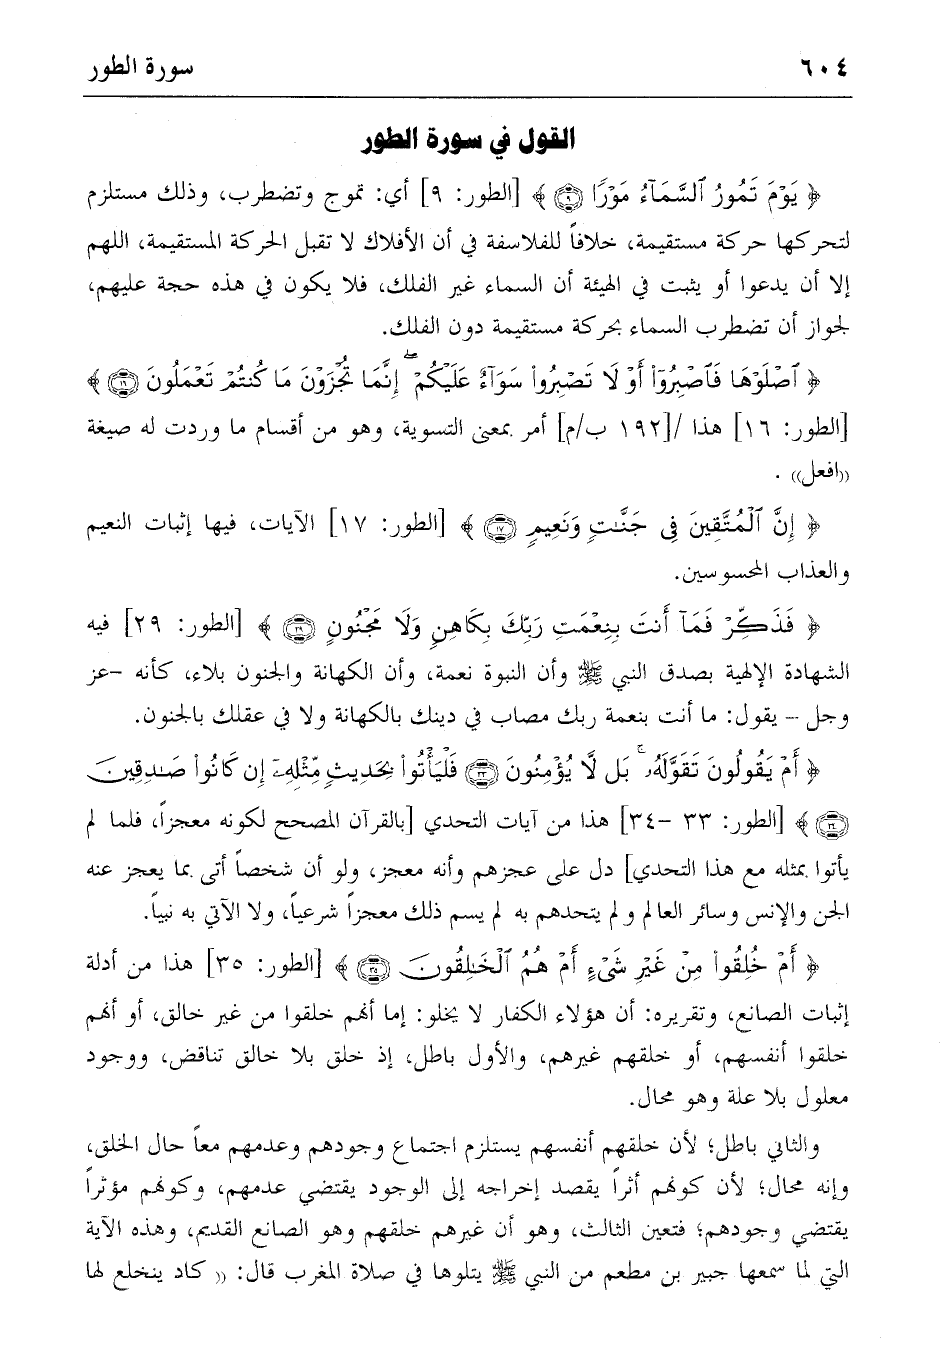 ٦٠٤ سورة الطور
القول في سورة الطور
﴿ يَوْمَ تَمُورُ ٱلسَّمَآءُ مَوْرًا ۝٩ ﴾ [الطور: ٩] أي: تموج وتضطرب، وذلك مستلزم
لتحركها حركة مستقيمة، خلافاً للفلاسفة في أن الأفلاك لا تقبل الحركة المستقيمة، اللهم
إلا أن يدعوا أو يثبت في الهيئة أن السماء غير الفلك، فلا يكون في هذه حجة عليهم،
لجواز أن تضطرب السماء بحركة مستقيمة دون الفلك.
﴿ ٱصْلَوْهَا فَٱصْبِرُوٓا۟ أَوْ لَا تَصْبِرُوا۟ سَوَآءٌ عَلَيْكُمْ ۖ إِنَّمَا تُجْزَوْنَ مَا كُنتُمْ تَعْمَلُونَ ۝١٦ ﴾
[الطور: ١٦] هذا /[١٩٢ ب/م] أمر بمعنى التسوية، وهو من أقسام ما وردت له صيغة
((افعل)) .
﴿ إِنَّ ٱلْمُتَّقِينَ فِى جَنَّٰتٍ وَنَعِيمٍ ۝١٧ ﴾ [الطور: ١٧] الآيات، فيها إثبات النعيم
والعذاب المحسوسين.
﴿ فَذَكِّرْ فَمَآ أَنتَ بِنِعْمَتِ رَبِّكَ بِكَاهِنٍ وَلَا مَجْنُونٍ ۝٢٩ ﴾ [الطور: ٢٩] فيه
الشهادة الإلهية بصدق النبي ﷺ وأن النبوة نعمة، وأن الكهانة والجنون بلاء، كأنه -عز
وجل – يقول: ما أنت بنعمة ربك مصاب في دينك بالكهانة ولا في عقلك بالجنون.
﴿ أَمْ يَقُولُونَ تَقَوَّلَهُۥ ۚ بَل لَّا يُؤْمِنُونَ ۝٣٣ فَلْيَأْتُوا۟ بِحَدِيثٍ مِّثْلِهِۦٓ إِن كَانُوا۟ صَٰدِقِينَ
۝٣٤ ﴾ [الطور: ٣٣ -٣٤] هذا من آيات التحدي [بالقرآن المصحح لكونه معجزاً، فلما لم
يأتوا بمثله مع هذا التحدي] دل على عجزهم وأنه معجز، ولو أن شخصاً أتى بما يعجز عنه
الجن والإنس وسائر العالم ولم يتحدهم به لم يسم ذلك معجزاً شرعياً، ولا الآتي به نبياً.
﴿ أَمْ خُلِقُوا۟ مِنْ غَيْرِ شَىْءٍ أَمْ هُمُ ٱلْخَٰلِقُونَ ۝٣٥ ﴾ [الطور: ٣٥] هذا من أدلة
إثبات الصانع، وتقريره: أن هؤلاء الكفار لا يخلو: إما أنهم خلقوا من غير خالق، أو أنهم
خلقوا أنفسهم، أو خلقهم غيرهم، والأول باطل، إذ خلق بلا خالق تناقض، ووجود
معلول بلا علة وهو محال.
والثاني باطل؛ لأن خلقهم أنفسهم يستلزم اجتماع وجودهم وعدمهم معاً حال الخلق،
وإنه محال؛ لأن كونهم أثراً يقصد إخراجه إلى الوجود يقتضي عدمهم، وكونهم مؤثراً
يقتضي وجودهم؛ فتعين الثالث، وهو أن غيرهم خلقهم وهو الصانع القديم، وهذه الآية
التي لما سمعها جبير بن مطعم من النبي ﷺ يتلوها في صلاة المغرب قال: (( كاد ينخلع لها